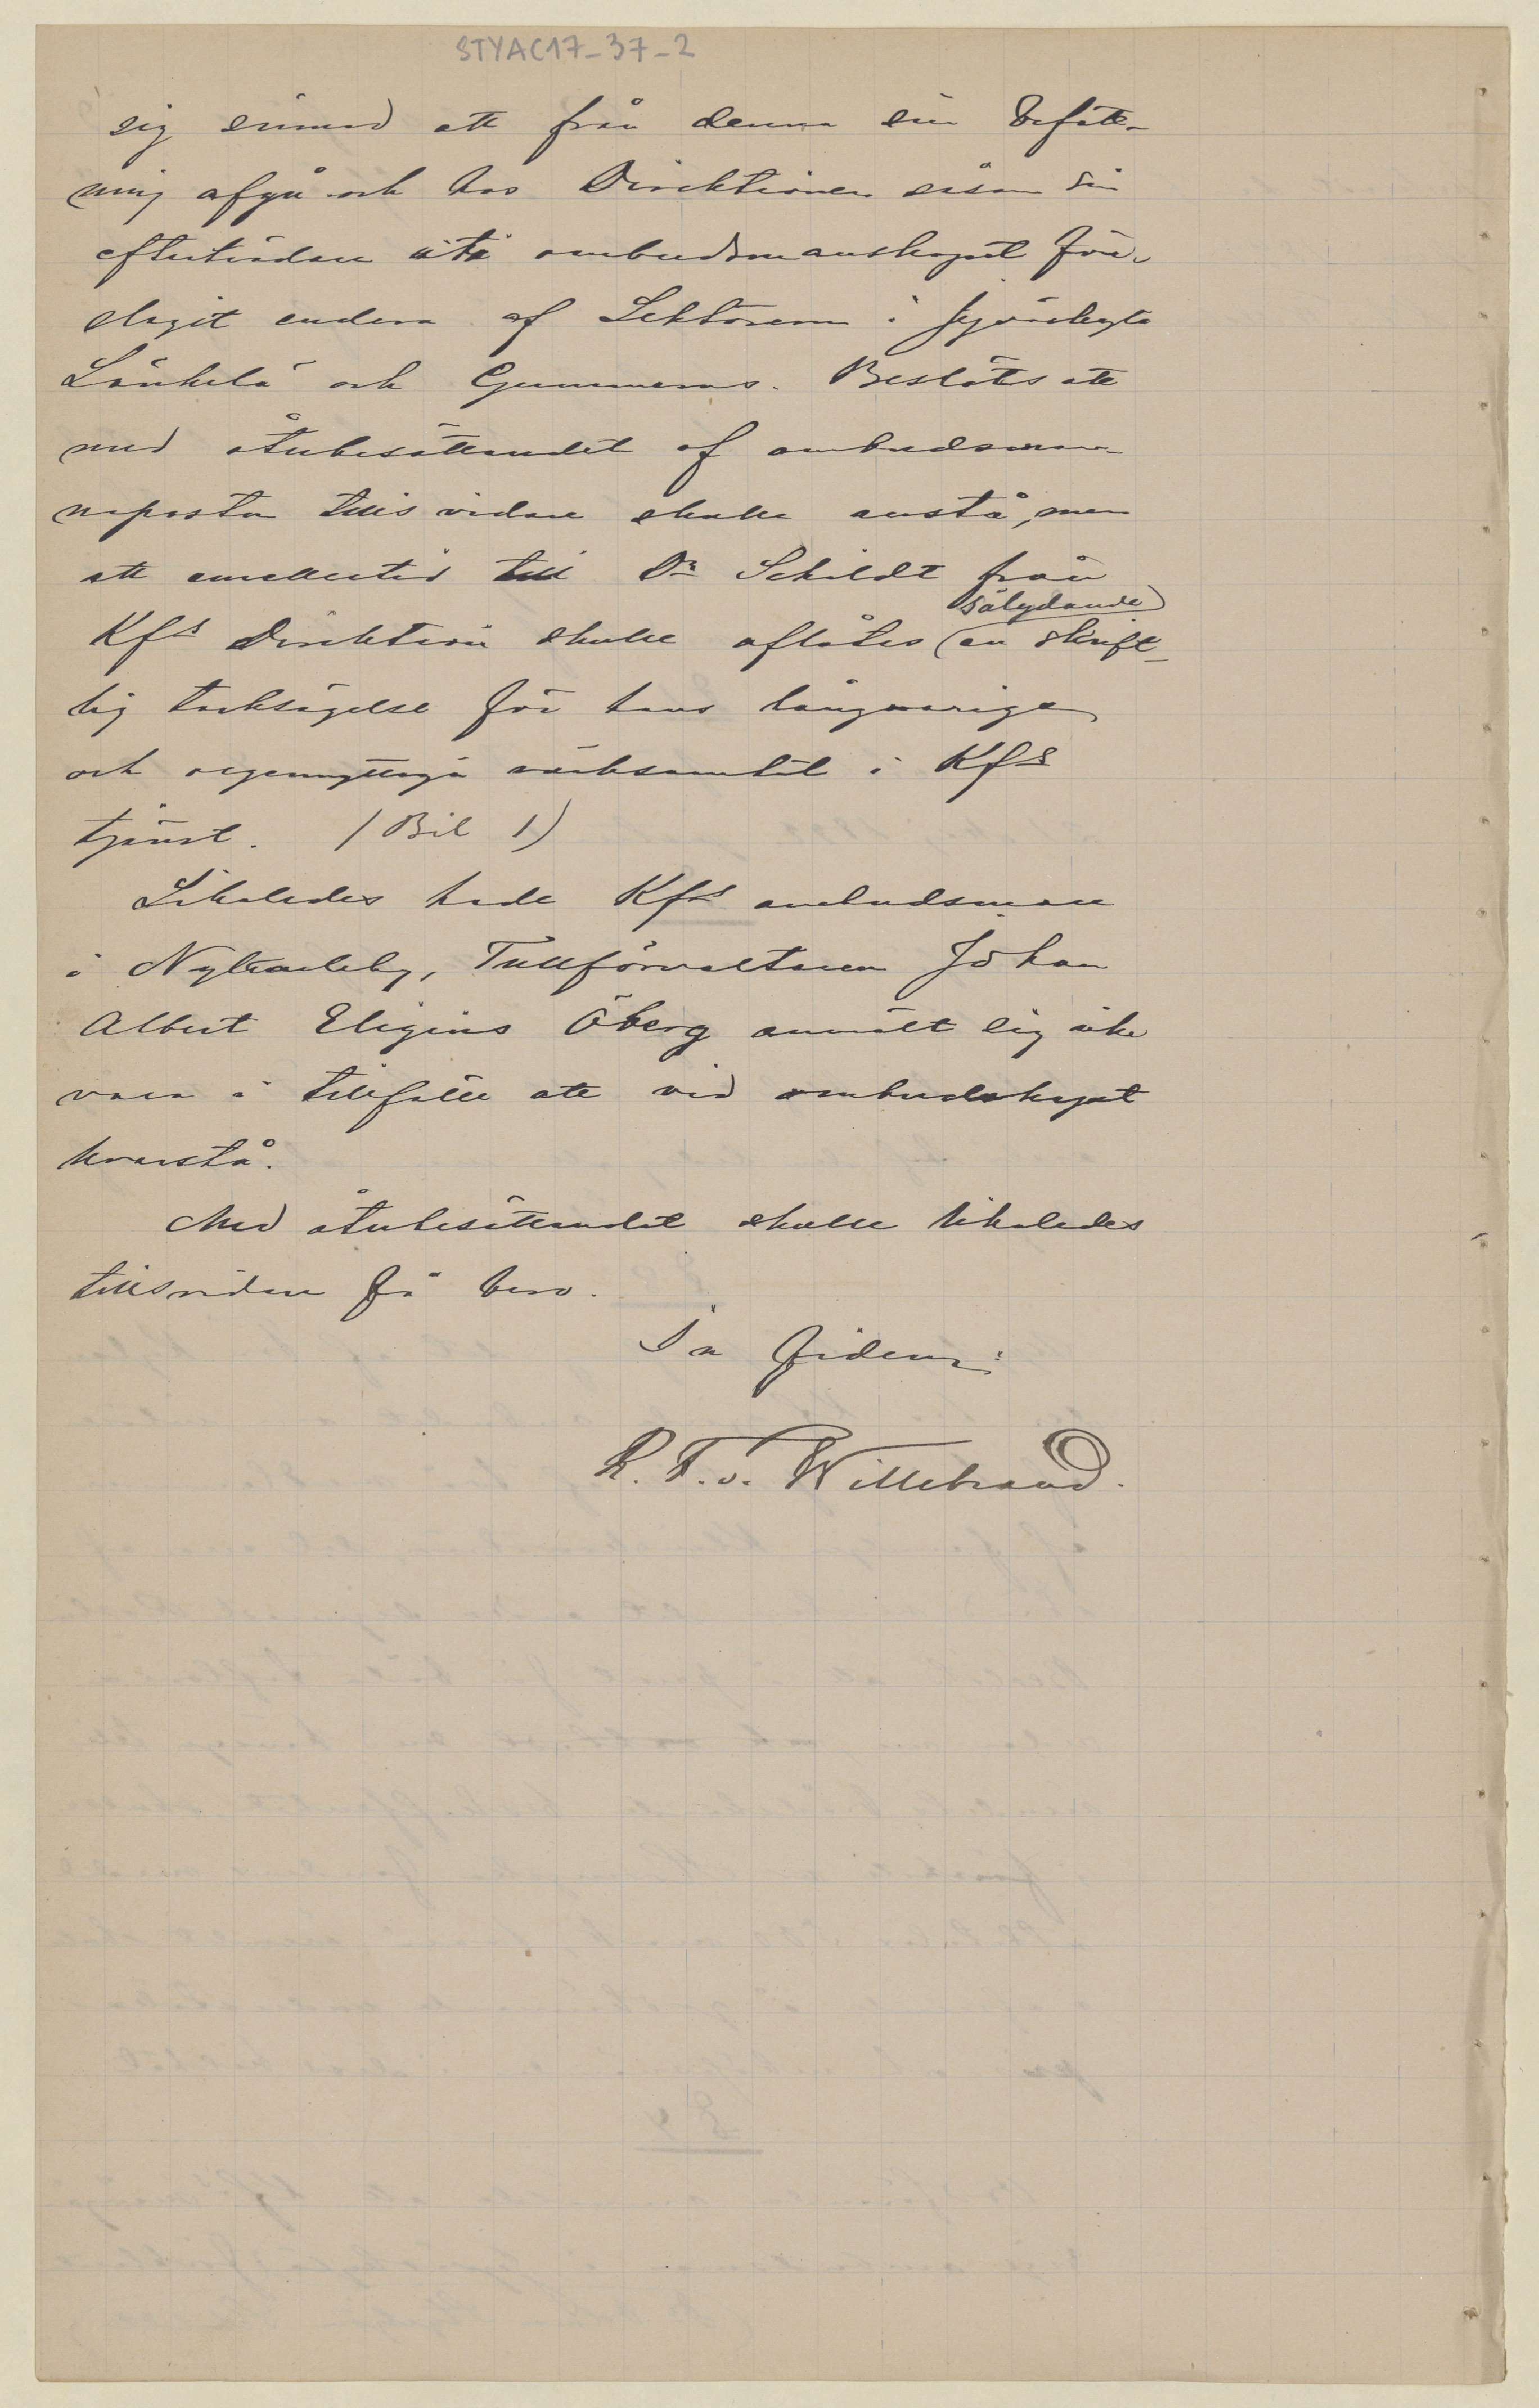 STYAC17-37-2
sig sinnad att från denna sin befatt-
ning afgå och hos Direktionen såsom sin
efterträdare uti ombudsmanskapet före-
slagit endera af Lektorerna i Jyväskylä
Länkelä och Gummerus. Beslöts att
med återbesättandet af ombudsman-
naposten tills vidare skulle anstå, men
att emellertid till Dr Schildt från
sålydande
Kfs Direktion skulle aflåtas (en skrift-
lig tacksägelse för hans långvariga
och oegennyttiga värksamhet i Kfs
tjänst. (Bil 1)
Likaledes hade Kfs ombudsman
i Nykarleby, Tullförvaltaren Johan
Albert Eligius Öberg anmält sig icke
vara i tillfälle att vid ombudskapet
kvarstå.
Med återbesättandet skulle likaledes
tillsvidare få bero.
In fidem:
R. F. v. Willebrand.